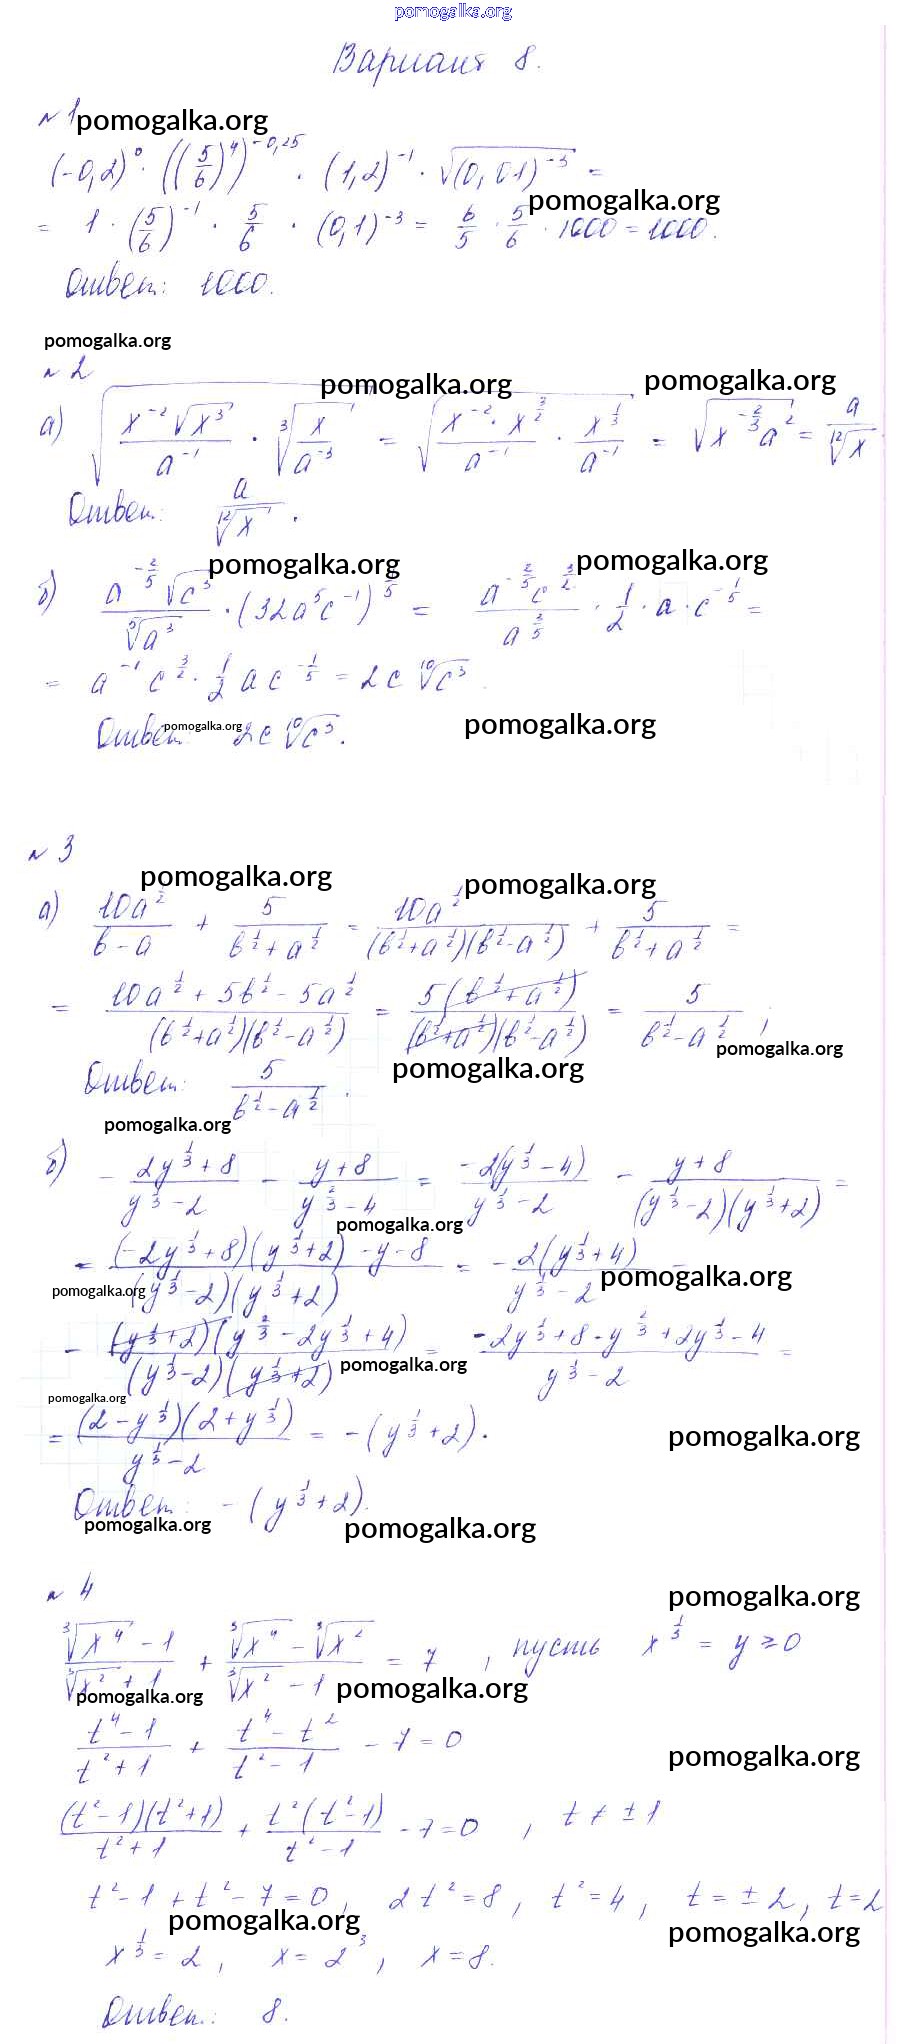 pomogalka.org
Вариант 8.
№1 pomogalka.org
(-0,2)^0 · ((5/6)^4)^{-0,25} · (1,2)^{-1} · √((0,01)^{-3}) =
pomogalka.org
= 1 · (5/6)^{-1} · 5/6 · (0,1)^{-3} = 6/5 · 5/6 · 1000 = 1000.
Ответ: 1000.
pomogalka.org
№2
pomogalka.org pomogalka.org
а) √(x^{-2}√(x^3)/a^{-1} · ∛(x/a^{-3})) = √(x^{-2} · x^{3/2}/a^{-1} · x^{1/3}/a^{-1}) = √(x^{-2/3}a^2) = a/¹²√x.
Ответ: a/¹²√x.
pomogalka.org pomogalka.org
б) a^{-2/5}√(c^3)/⁵√(a^3) · (32a^5c^{-1})^{1/5} = a^{-2/5}c^{3/2}/a^{3/5} · 1/2 · a · c^{-1/5} =
= a^{-1}c^{3/2} · 1/2 a c^{-1/5} = 2c ¹⁰√(c^3).
Ответ: pomogalka.org 2c ¹⁰√(c^3). pomogalka.org
№3
pomogalka.org pomogalka.org
а) 10a^{1/2}/(b-a) + 5/(b^{1/2}+a^{1/2}) = 10a^{1/2}/((b^{1/2}+a^{1/2})(b^{1/2}-a^{1/2})) + 5/(b^{1/2}+a^{1/2}) =
= (10a^{1/2}+5b^{1/2}-5a^{1/2})/((b^{1/2}+a^{1/2})(b^{1/2}-a^{1/2})) = 5(b^{1/2}+a^{1/2})/((b^{1/2}+a^{1/2})(b^{1/2}-a^{1/2})) = 5/(b^{1/2}-a^{1/2});
pomogalka.org
pomogalka.org
Ответ: 5/(b^{1/2}-a^{1/2}).
pomogalka.org
б) - (2y^{1/3}+8)/(y^{1/3}-2) - (y+8)/(y^{2/3}-4) = -2(y^{1/3}-4)/(y^{1/3}-2) - (y+8)/((y^{1/3}-2)(y^{1/3}+2)) =
pomogalka.org
= ((-2y^{1/3}+8)(y^{1/3}+2)-y-8)/((y^{1/3}-2)(y^{1/3}+2)) = - 2(y^{1/3}+4)/(y^{1/3}-2) -
pomogalka.org pomogalka.org
- (y^{1/3}+2)(y^{2/3}-2y^{1/3}+4)/((y^{1/3}-2)(y^{1/3}+2)) = (-2y^{1/3}+8-y^{2/3}+2y^{1/3}-4)/(y^{1/3}-2) =
pomogalka.org
pomogalka.org
= (2-y^{1/3})(2+y^{1/3})/(y^{1/3}-2) = -(y^{1/3}+2).
pomogalka.org
Ответ: -(y^{1/3}+2).
pomogalka.org pomogalka.org
№4
pomogalka.org
(∛(x^4)-1)/(∛(x^2)+1) + (∛(x^4)-∛(x^2))/(∛(x^2)-1) = 7, пусть x^{1/3} = y ≥ 0
pomogalka.org pomogalka.org
(t^4-1)/(t^2+1) + (t^4-t^2)/(t^2-1) - 7 = 0
pomogalka.org
(t^2-1)(t^2+1)/(t^2+1) + t^2(t^2-1)/(t^2-1) - 7 = 0, t ≠ ±1
t^2-1+t^2-7=0, 2t^2=8, t^2=4, t=±2, t=2
pomogalka.org pomogalka.org
x^{1/3}=2, x=2^3, x=8.
Ответ: 8.